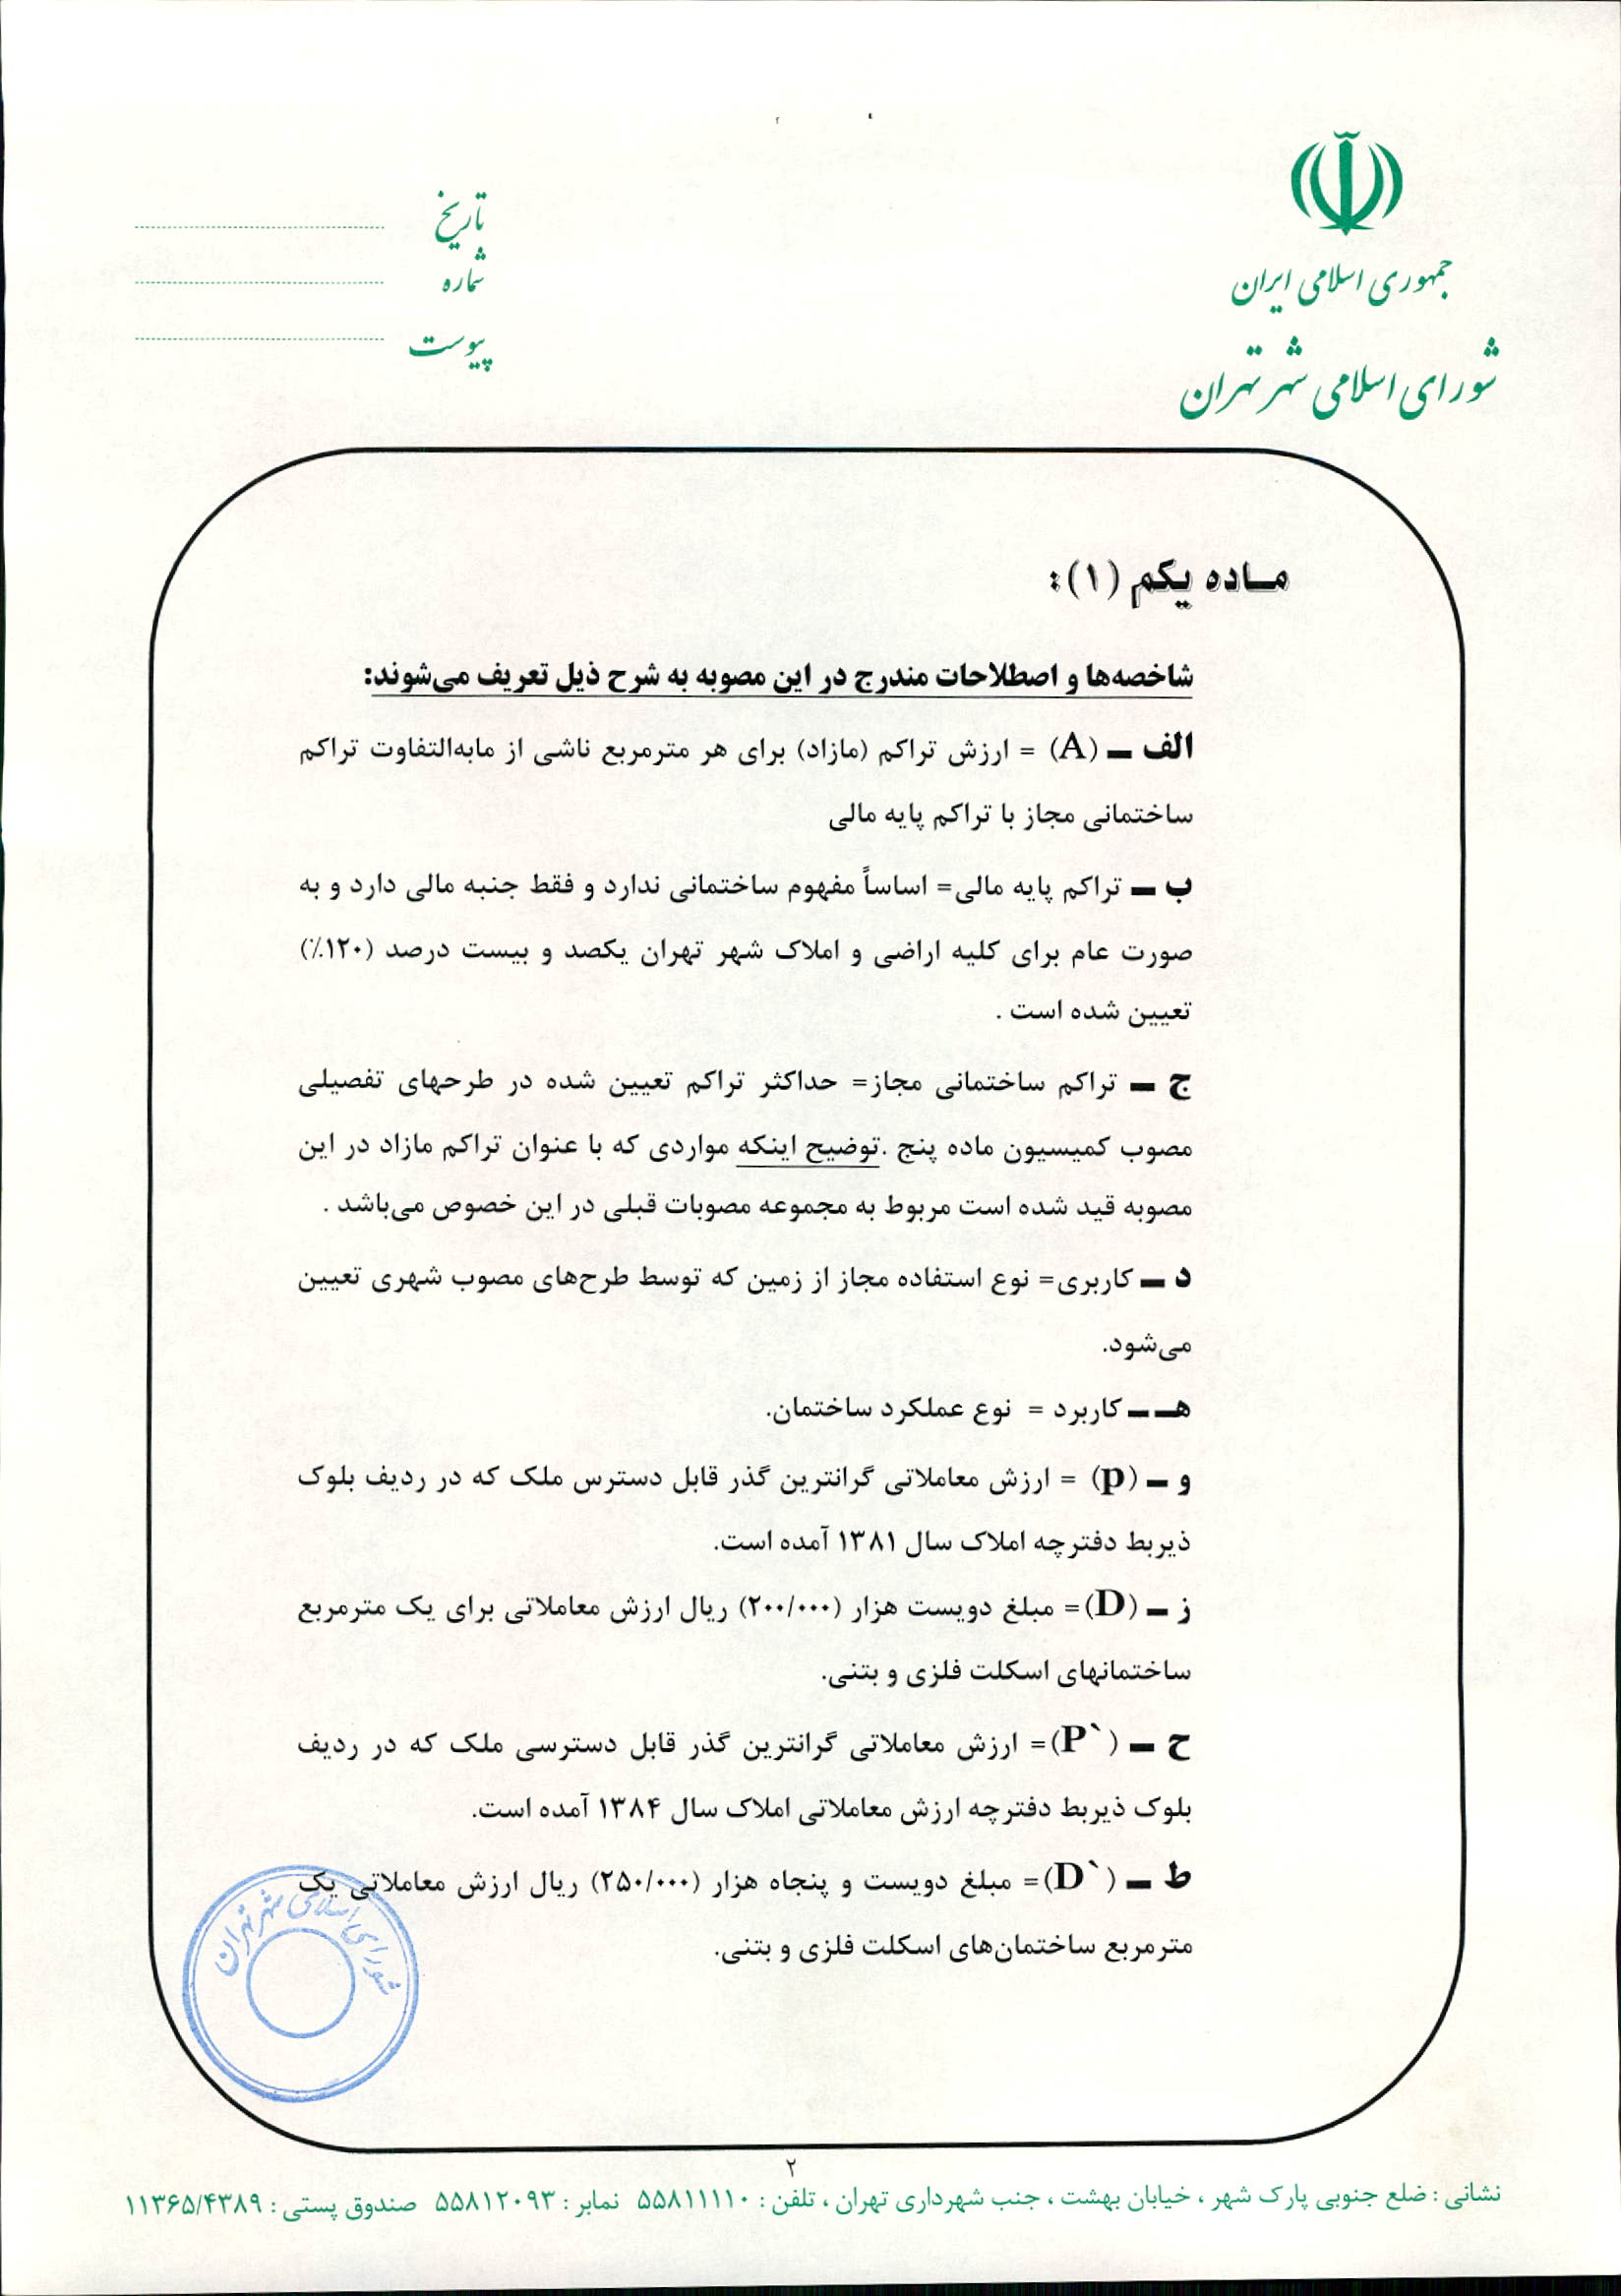 جمهوری اسلامی ایران
شورای اسلامی شهر تهران
تاریخ
شماره
پیوست
ماده یکم (۱):
شاخصه‌ها و اصطلاحات مندرج در این مصوبه به شرح ذیل تعریف می‌شوند:
الف ــ (A) = ارزش تراکم (مازاد) برای هر مترمربع ناشی از مابه‌التفاوت تراکم
ساختمانی مجاز با تراکم پایه مالی
ب ــ تراکم پایه مالی= اساساً مفهوم ساختمانی ندارد و فقط جنبه مالی دارد و به
صورت عام برای کلیه اراضی و املاک شهر تهران یکصد و بیست درصد (۱۲۰٪)
تعیین شده است .
ج ــ تراکم ساختمانی مجاز= حداکثر تراکم تعیین شده در طرحهای تفصیلی
مصوب کمیسیون ماده پنج .توضیح اینکه مواردی که با عنوان تراکم مازاد در این
مصوبه قید شده است مربوط به مجموعه مصوبات قبلی در این خصوص می‌باشد .
د ــ کاربری= نوع استفاده مجاز از زمین که توسط طرح‌های مصوب شهری تعیین
می‌شود.
هـ ــ کاربرد = نوع عملکرد ساختمان.
و ــ (p) = ارزش معاملاتی گرانترین گذر قابل دسترس ملک که در ردیف بلوک
ذیربط دفترچه املاک سال ۱۳۸۱ آمده است.
ز ــ (D)= مبلغ دویست هزار (۲۰۰/۰۰۰) ریال ارزش معاملاتی برای یک مترمربع
ساختمانهای اسکلت فلزی و بتنی.
ح ــ (P`)= ارزش معاملاتی گرانترین گذر قابل دسترسی ملک که در ردیف
بلوک ذیربط دفترچه ارزش معاملاتی املاک سال ۱۳۸۴ آمده است.
ط ــ (D`)= مبلغ دویست و پنجاه هزار (۲۵۰/۰۰۰) ریال ارزش معاملاتی یک
مترمربع ساختمان‌های اسکلت فلزی و بتنی.
شورای اسلامی شهر تهران
۲
نشانی : ضلع جنوبی پارک شهر ، خیابان بهشت ، جنب شهرداری تهران ، تلفن : ۵۵۸۱۱۱۱۰ نمابر : ۵۵۸۱۲۰۹۳ صندوق پستی : ۱۱۳۶۵/۴۳۸۹